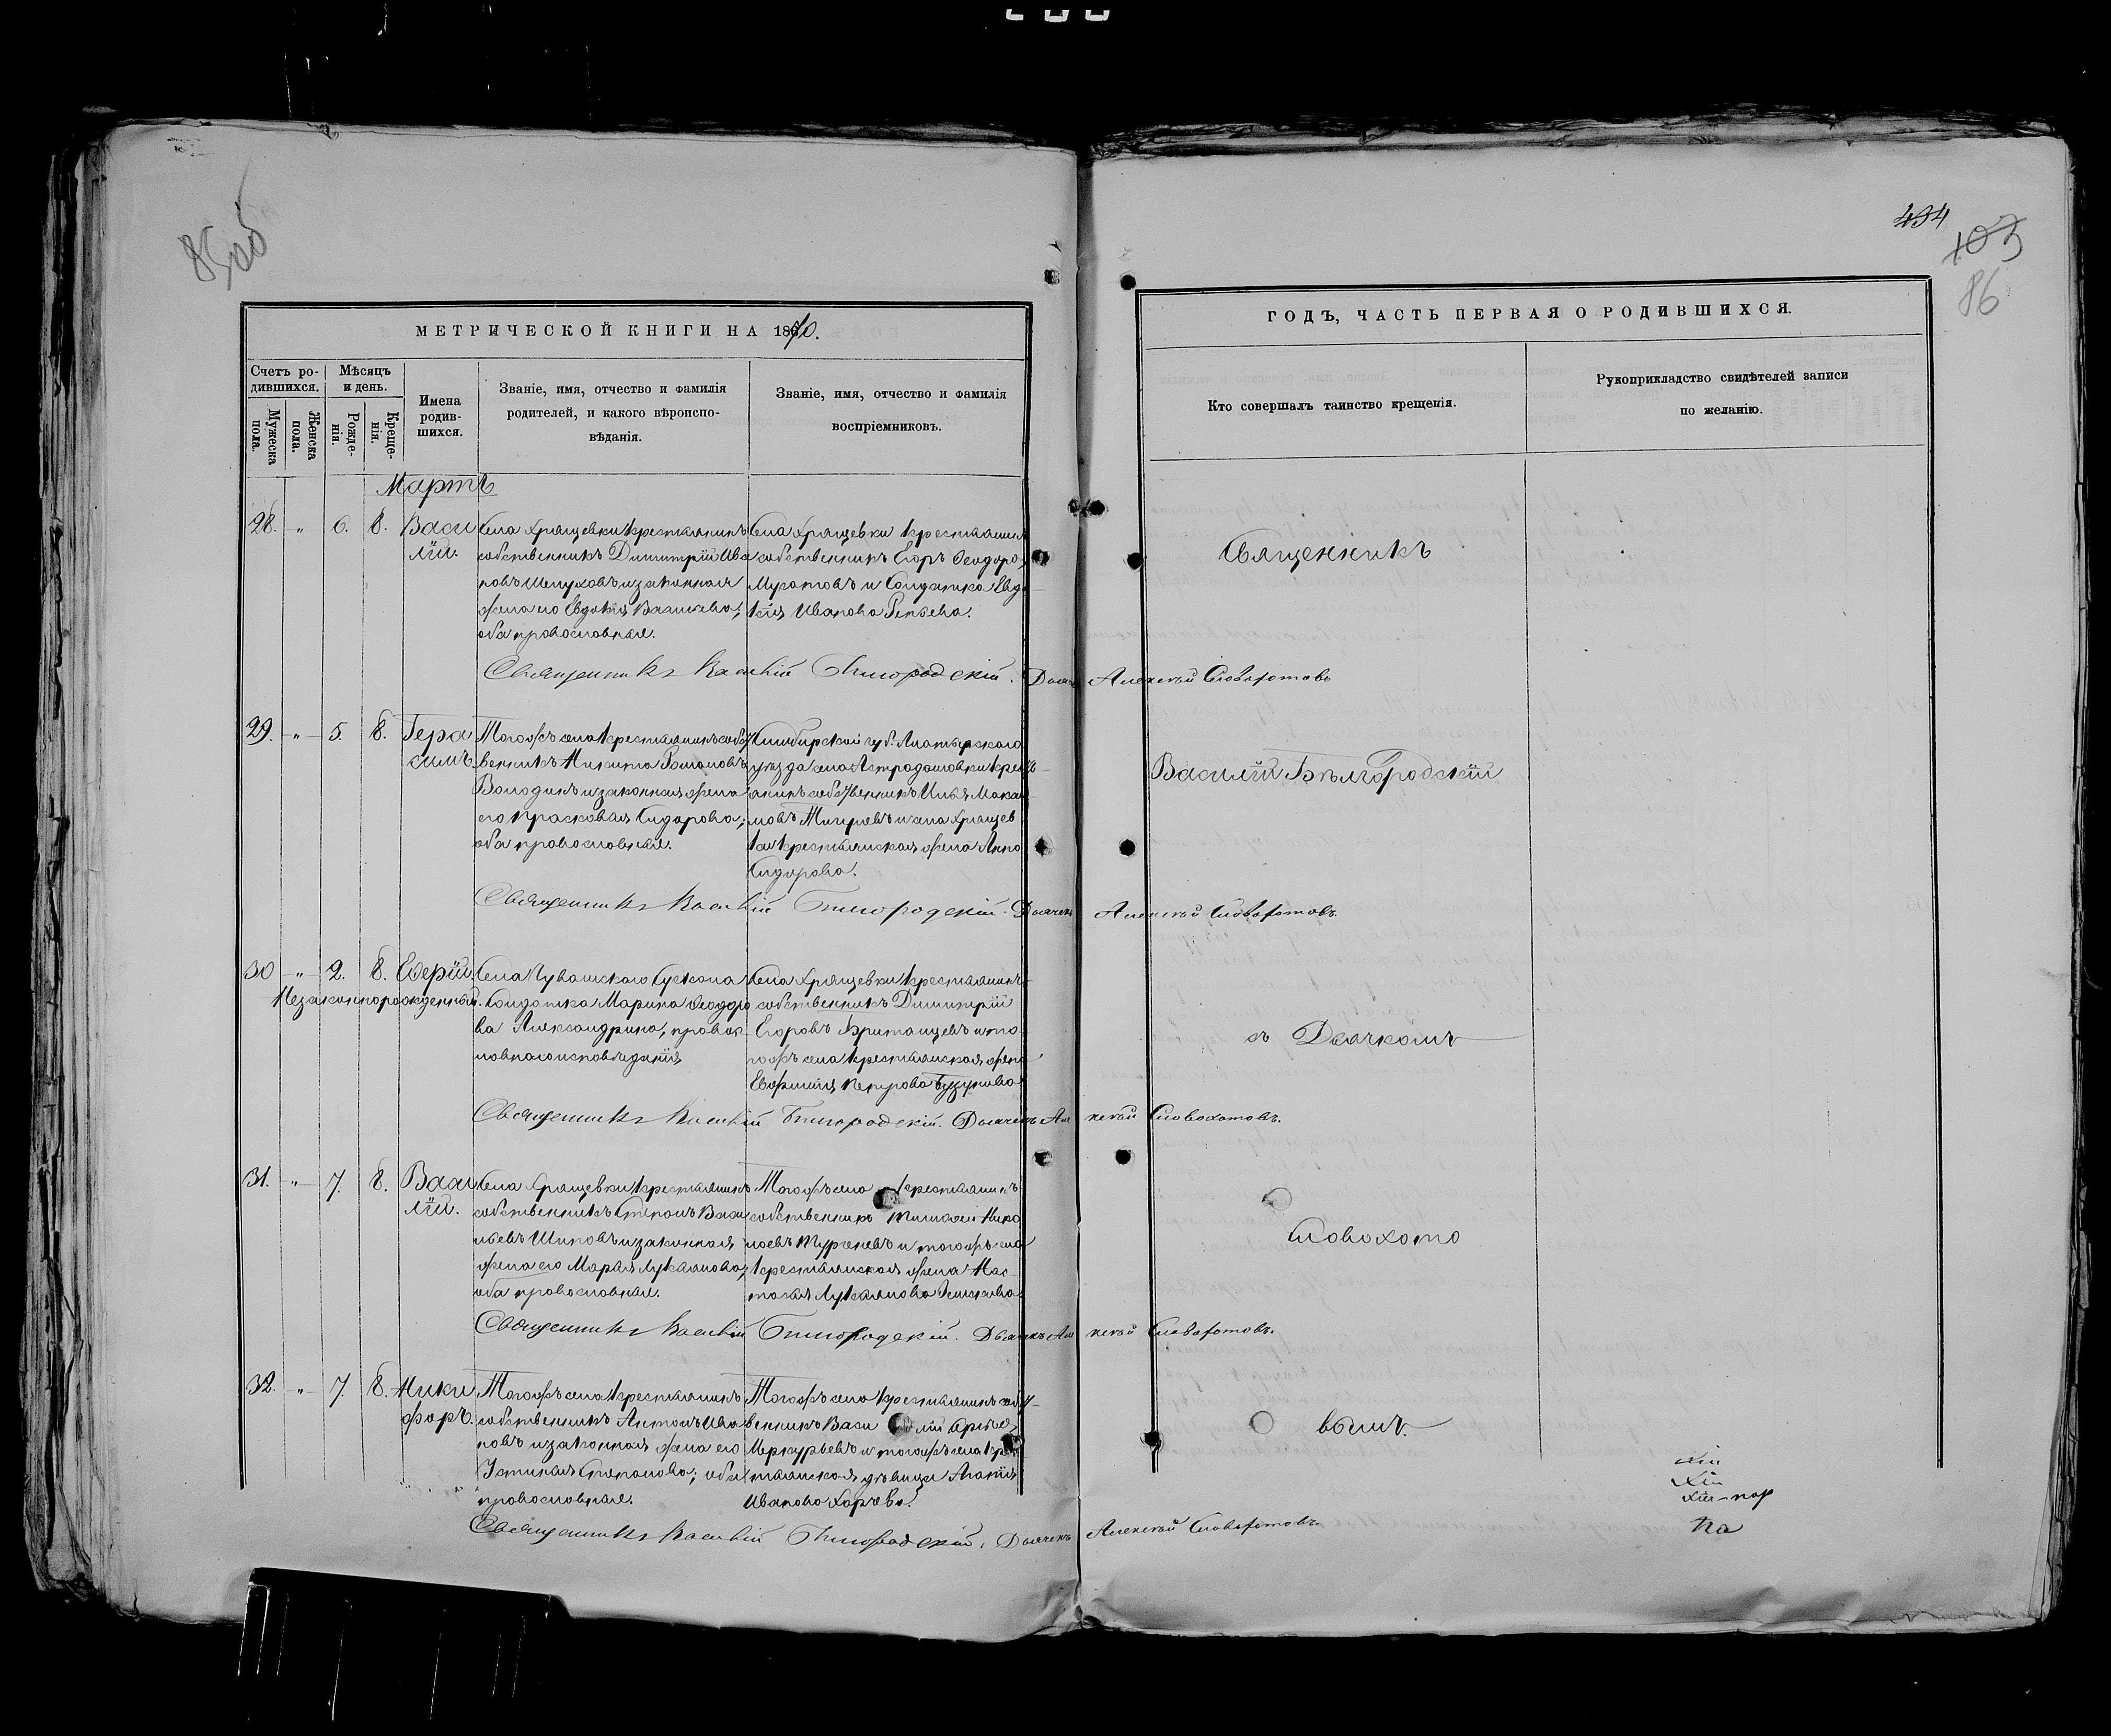 85об
494
103
86
МЕТРИЧЕСКОЙ КНИГИ НА 1870.
ГОДЪ, ЧАСТЬ ПЕРВАЯ О РОДИВШИХСЯ.
Счетъ ро-
дившихся.
Мѣсяцъ
и день.
Мужеска
пола.
Женска
пола.
Рожде-
нія.
Креще-
нія.
Имена
родив-
шихся.
Званіе, имя, отчество и фамилія
родителей, и какого вѣроиспо-
вѣданія.
Званіе, имя, отчество и фамилія
воспріемниковъ.
Кто совершалъ таинство крещенія.
Рукоприкладство свидѣтелей записи
по желанію.
Мартъ
28. " 6. 8. Васи
лій.
Села Хрящевки крестьянинъ
собственникъ Димитрій Ива
новъ Шепуховъ и законная
жена его Евдокія Васильева;
оба православные.
Села Хрящевки крестьянинъ
собственникъ Егоръ Ѳеодоро
Муратовъ и Солдатка Евдо
кія Иванова Репьева.
Священникъ Василій Бѣлгородскій. Дьячекъ Алексѣй Словохотовъ
29. " 5. 8. Гера
симъ.
Тогожъ села крестьянинъ собст
венникъ Никита Романовъ
Володинъ и законная жена
его Прасковья Сидорова;
оба православные.
Симбирской губ. Алатырского
уѣзда села Астрадамовки крест
анинъ собственникъ Илья Макси
мовъ и села Хрящев
ки крестьянская жена Анна
Сидорова.
Священникъ Василій Бѣлгородскій. Дьячекъ Алексѣй Словохотовъ.
30 " 2. 8. Еверій.
Незаконнорожденный.
Села Чувашскаго Сускана
Солдатка Марина Ѳеодоро
ва Александрина, правос
лавнаго исповѣданія
Села Хрящевки крестьянинъ
собственникъ Димитрій
Егоровъ Британцевъ и то
гожъ села крестьянская жена
Евфимія Петрова
Священникъ Василій Бѣлгородскій. Дьячекъ Алексѣй Словохотовъ.
31. " 7. 8. Васи
лій.
Села Хрящевки крестьянинъ
собственникъ Степанъ Васи
льевъ Шиповъ и законная
жена его Марья Лукьянова;
оба православные.
Тогожъ села крестьянинъ
собственникъ Тимофей Нико
лаевъ Тургеневъ и тогожъ села
крестьянская жена Нас
тасья Лукьянова
Священникъ Василій Бѣлгородскій. Дьячекъ Алексѣй Словохотовъ.
32. " 7. 8. Ники
форъ.
Тогожъ села крестьянинъ
собственникъ Антонъ Ива
новъ и законная жена его
Устинья Степанова; оба
православные.
Тогожъ села крестьянинъ собст
венникъ Василій
Меркурьевъ и тогожъ села крес
тьянская дѣвица Агапія
Иванова Харчева.
Священникъ Василій Бѣлгородскій. Дьячекъ Алексѣй Словохотовъ.
Священникъ
Василій Бѣлгородскій
съ Дьячкомъ
Словохото
вымъ.